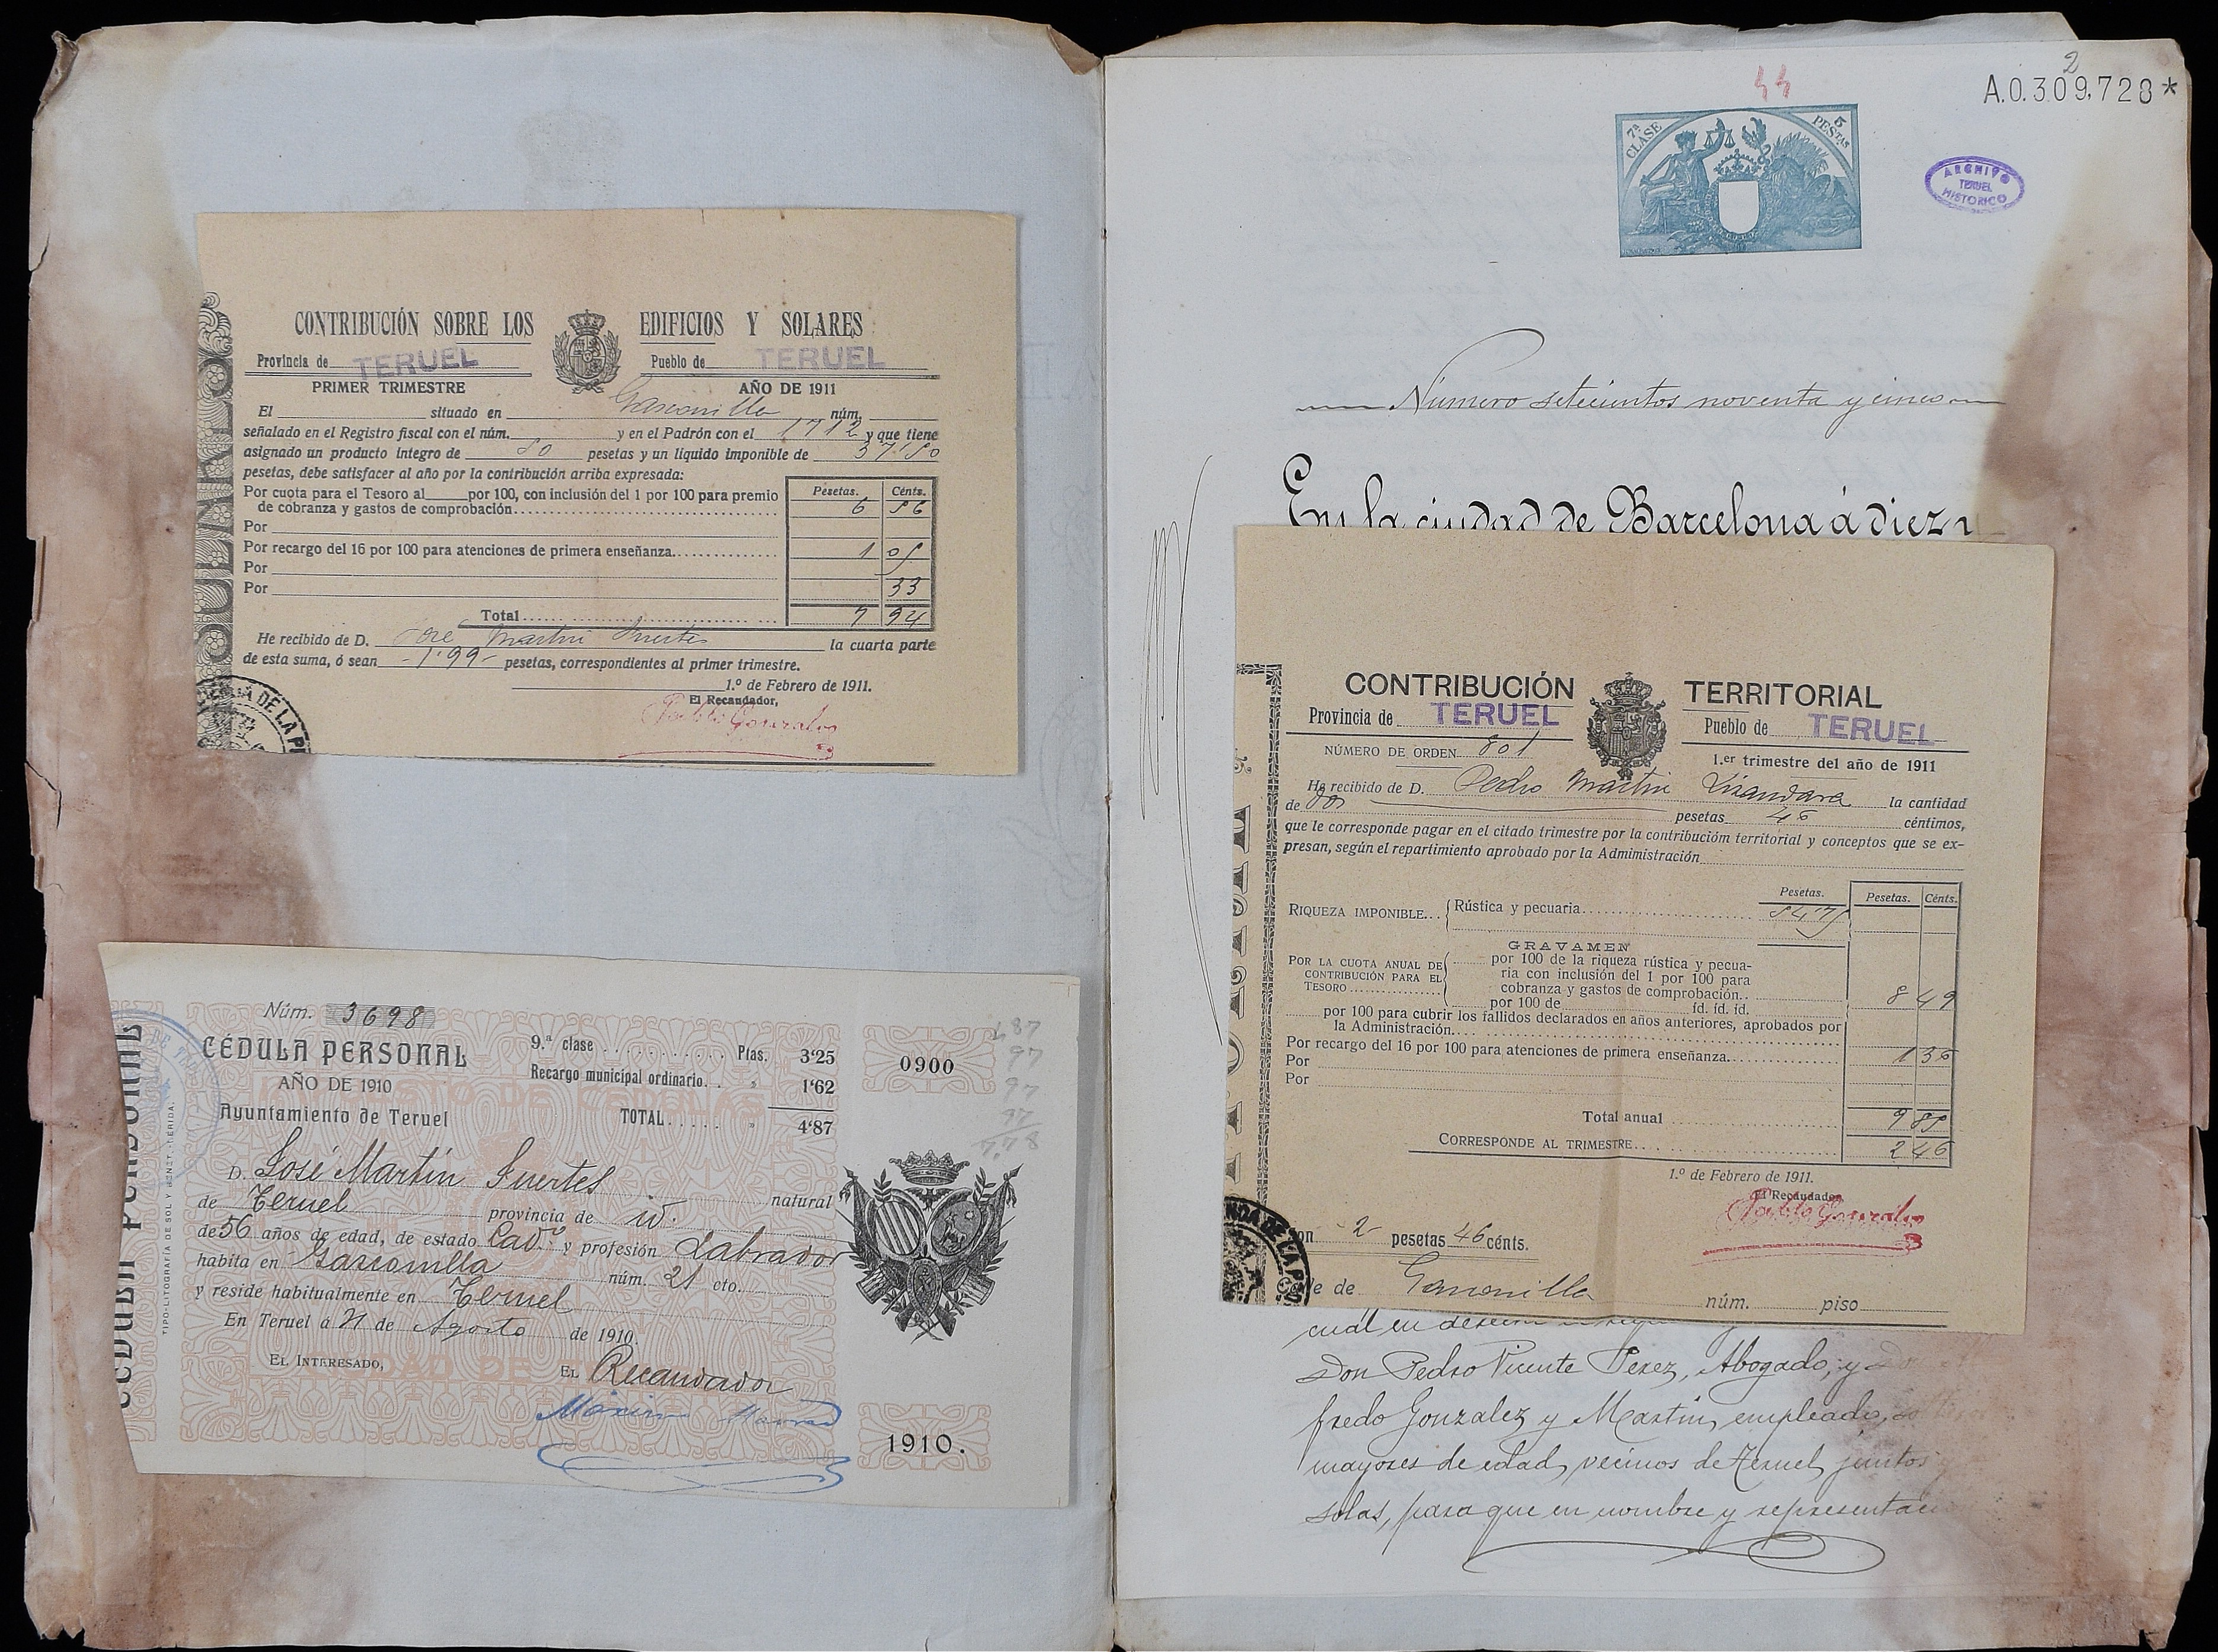 CONTRIBUCIÓN SOBRE LOS EDIFICIOS Y SOLARES
Provincia de TERUEL Pueblo de TERUEL
PRIMER TRIMESTRE AÑO DE 1911
El situado en Gasconilla núm.
señalado en el Registro fiscal con el núm. y en el Padrón con el 1712 y que tiene
asignado un producto íntegro de 50 pesetas y un líquido imponible de 37'50
pesetas, debe satisfacer al año por la contribución arriba expresada:
Pesetas. Cénts.
Por cuota para el Tesoro al por 100, con inclusión del 1 por 100 para premio
de cobranza y gastos de comprobación 6 56
Por
Por recargo del 16 por 100 para atenciones de primera enseñanza 1 05
Por
Por 33
Total 7 94
He recibido de D. José Martin Fuertes la cuarta parte
de esta suma, ó sean 1'99 pesetas, correspondientes al primer trimestre.
1.º de Febrero de 1911.
El Recaudador,
Pablo Gonzalez
Núm. 3698
CÉDULA PERSONAL
CÉDULA PERSONAL
AÑO DE 1910
Ayuntamiento de Teruel
9.ª clase Ptas. 3'25
Recargo municipal ordinario. » 1'62
TOTAL » 4'87
D. José Martín Fuertes natural
de Teruel provincia de id.
de 56 años de edad, de estado Cad.º y profesión Labrador
habita en Gasconilla núm. 21 cto.
y reside habitualmente en Teruel
En Teruel á 21 de Agosto de 1910.
EL INTERESADO, EL Recaudador
0900
487
97
97
97
7,78
1910.
TIPO-LITOGRAFÍA DE SOL Y BENET.-LÉRIDA.
2
A.0.309,728*
7ª CLASE 5 PESTAS
ARCHIVO
TERUEL
HISTORICO
Número setecientos noventa y cinco
En la ciudad de Barcelona á diez
CONTRIBUCIÓN TERRITORIAL
Provincia de TERUEL Pueblo de TERUEL
NÚMERO DE ORDEN 801 1.er trimestre del año de 1911
He recibido de D. Pedro Martin Lizandara la cantidad
de dos pesetas 46 céntimos,
que le corresponde pagar en el citado trimestre por la contribucióm territorial y conceptos que se ex-
presan, según el repartimiento aprobado por la Admimistración
Pesetas. Pesetas. Cénts.
RIQUEZA IMPONIBLE... Rústica y pecuaria 54'75
GRAVAMEN
POR LA CUOTA ANUAL DE CONTRIBUCIÓN PARA EL TESORO
por 100 de la riqueza rústica y pecua-
ria con inclusión del 1 por 100 para
cobranza y gastos de comprobación.. 8 49
por 100 de íd. íd. íd.
por 100 para cubrir los fallidos declarados en años anteriores, aprobados por
la Administración
Por recargo del 16 por 100 para atenciones de primera enseñanza 1 36
Por
Por
Total anual 9 85
CORRESPONDE AL TRIMESTRE 2 46
1.º de Febrero de 1911.
El Recaudador
Pablo Gonzalez
on 2 pesetas 46 cénts.
e de Gasconilla núm. piso
cual en
Don Pedro Vicente Perez, Abogado, y
fredo Gonzalez y Martin, empleado,
mayores de edad, vecinos de Teruel, juntos y
solas, para que en nombre y representaci